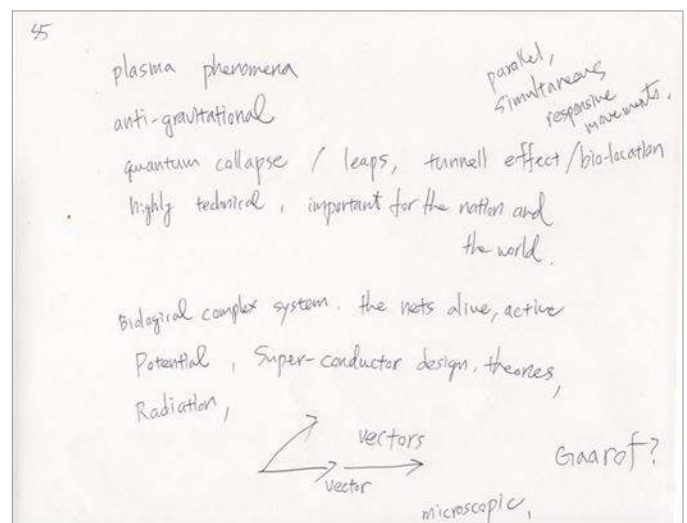 45
plasma phenomena
parallel,
simultaneous
responsive
movements.
anti-gravitational
quantum collapse / leaps, tunnell effect/bio-location
highly technical, important for the nation and
the world.
Biological complex system. the nets alive, active
Potential, Super-conductor design, theories,
Radiation,
vectors
vector
Gaarof?
microscopic,